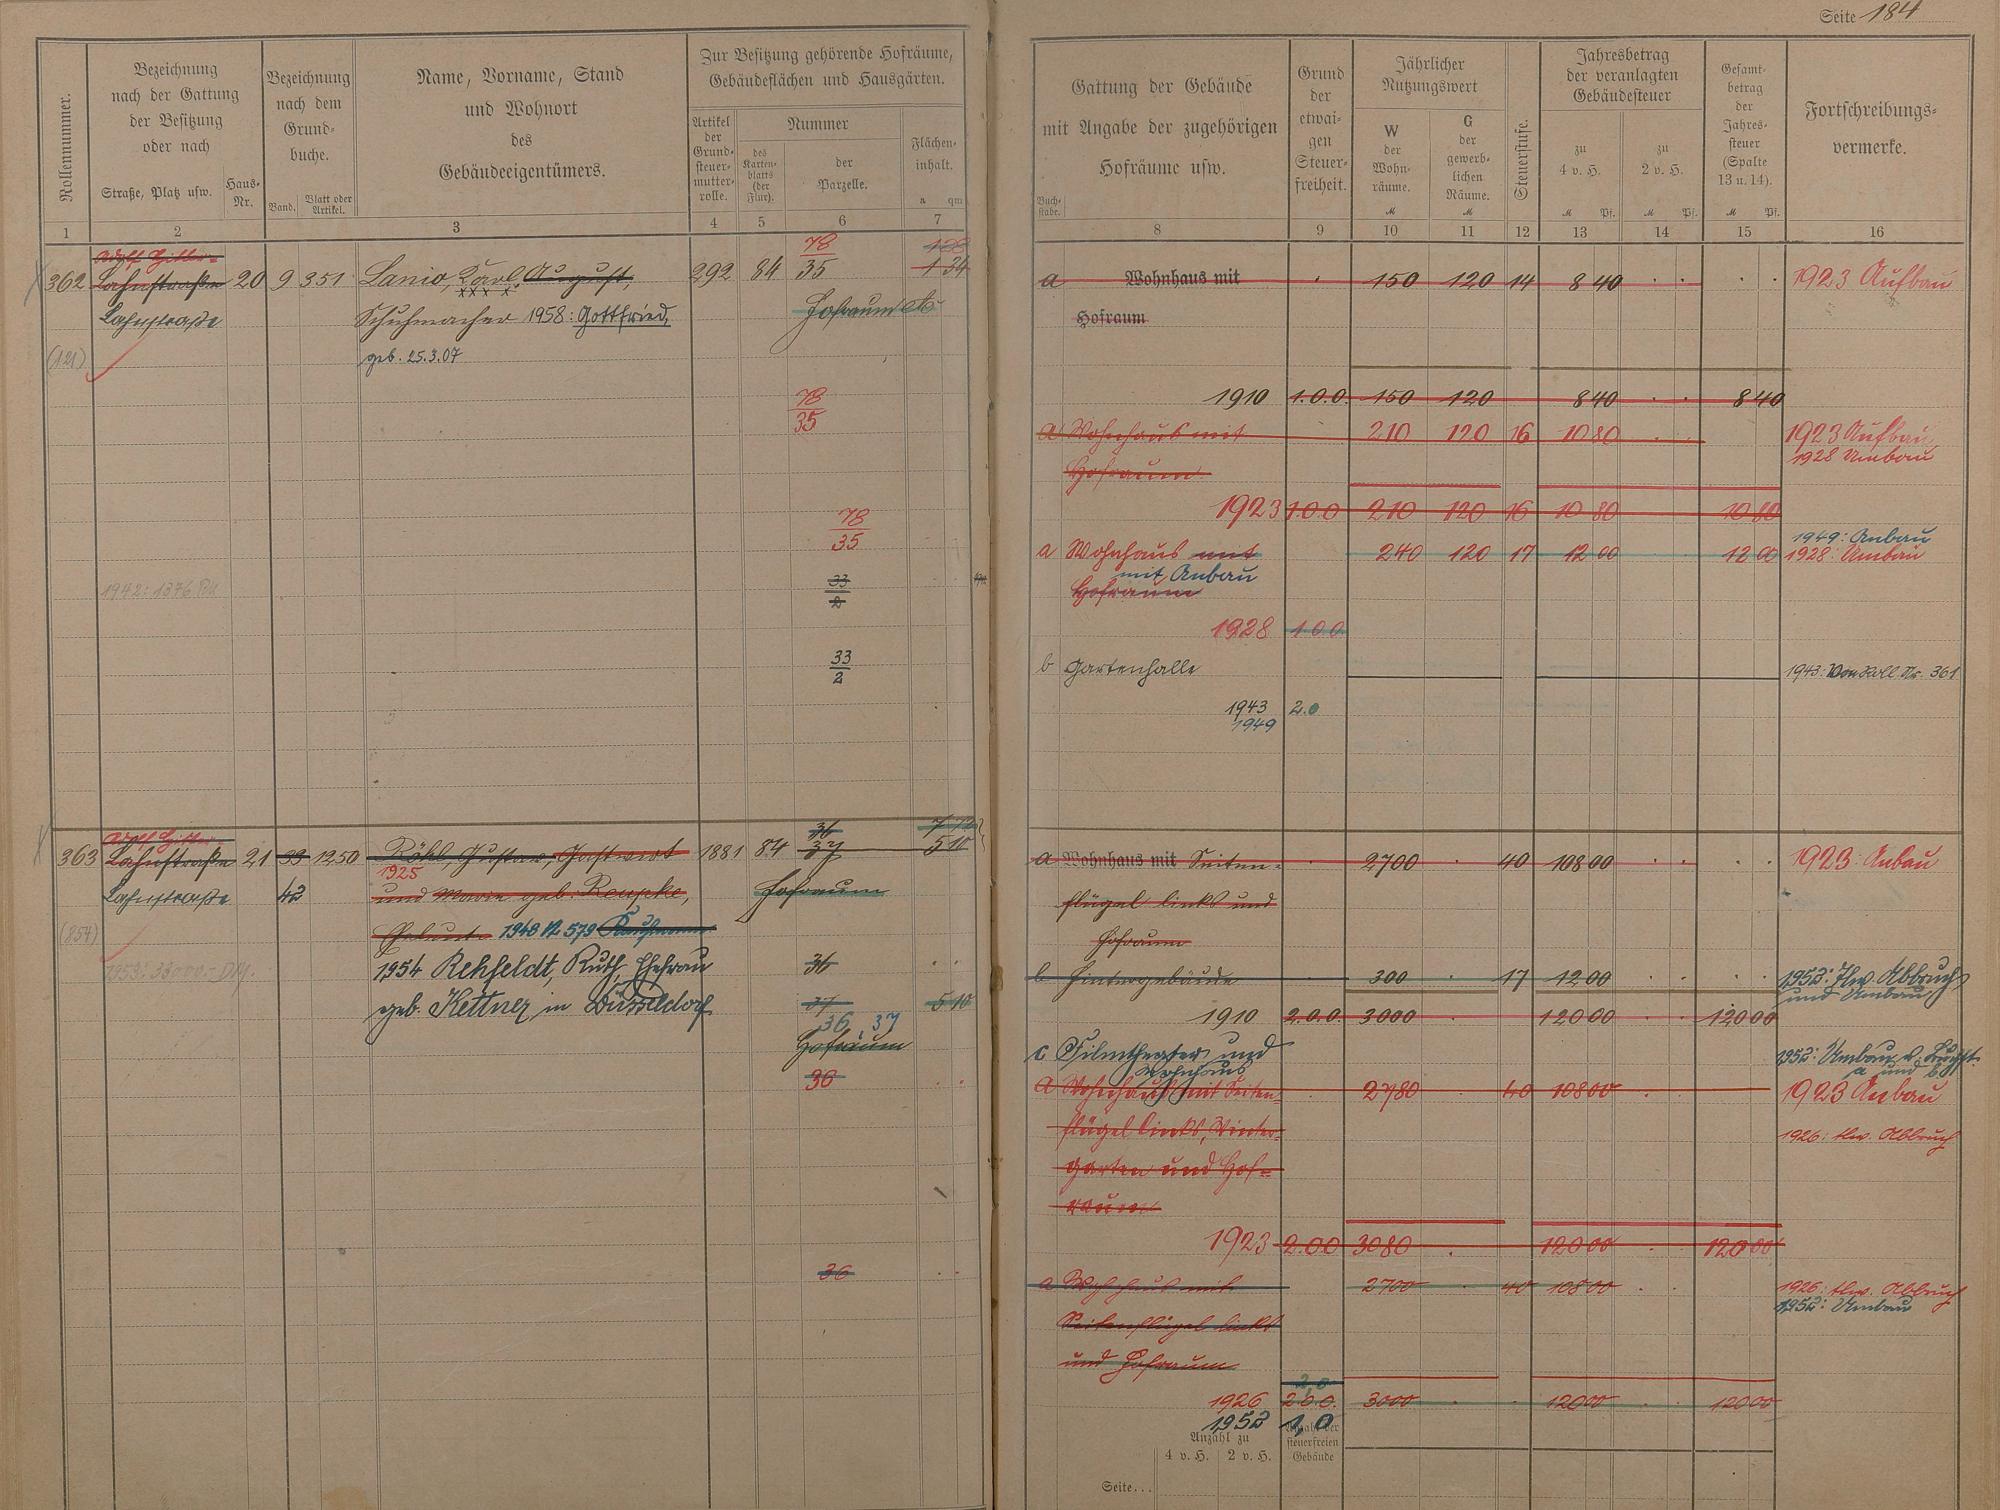 Seite 184
Rollennummer.
Bezeichnung
nach der Gattung
der Besitzung
oder nach
Straße, Platz usw.
Haus-
Nr.
Bezeichnung
nach dem
Grund-
buche.
Band.
Blatt oder
Artikel.
Name, Vorname, Stand
und Wohnort
des
Gebäudeeigentümers.
Zur Besitzung gehörende Hofräume,
Gebäudeflächen und Hausgärten.
Artikel
der
Grund-
steuer-
mutter-
rolle.
Nummer
des
Karten-
blatts
(der
Flur).
der
Parzelle.
Flächen-
inhalt.
a qm
1 2 3 4 5 6 7
Gattung der Gebäude
mit Angabe der zugehörigen
Hofräume usw.
Buch-
stabe.
Grund
der
etwai-
gen
Steuer-
freiheit.
Jährlicher
Nutzungswert
W
der
Wohn-
räume.
M
G
der
gewerb-
lichen
Räume.
M
Steuerstufe.
Jahresbetrag
der veranlagten
Gebäudesteuer
zu
4 v. H.
M Pf.
zu
2 v. H.
M Pf.
Gesamt-
betrag
der
Jahres-
steuer
(Spalte
13 u. 14).
M Pf.
Fortschreibungs-
vermerke.
8 9 10 11 12 13 14 15 16
Adolf Hitler-
78 128
362 Lahnstraße 20 9 351 Lanio, Karl August, 292 84 35 1 34
Lahnstraße Schuhmacher 1958: Gottfried, Hofraum etc
(121) geb. 25.3.07
78
35
78
35
1942: 1376 RM
33
2
33
2
Adolf Hitler
36 7 72
363 Lahnstraße 21 39 1250 Röhl, Gustav, Gastwirt 1881 84 37 5 10
1925
Lahnstraße 42 und Marie geb. Reupke, Hofraum
(854) Eheleute 1948 N 579 Kaufmann
1953: 33000.- DM. 1954 Rehfeldt, Ruth, Ehefrau 36
geb. Kettner in Düsseldorf 37 5 10
36, 37
Hofraum
36
36
a Wohnhaus mit 150 120 14 8 40 1923 Aufbau
Hofraum
1910 1.0.0. 150 120 8 40 8 40
a Wohnhaus mit 210 120 16 10 80 1923 Aufbau
1928 Umbau
Hofraum
1923 1.0.0 210 120 16 10 80 10 80
1949: Anbau
a Wohnhaus mit 240 120 17 12 00 12 00 1928: Umbau
mit Anbau
Hofraum
1928 1.0.0
b Gartenhalle 1943: Von Roll Nr. 361
1943 2.0
1949
a Wohnhaus mit Seiten- 2700 40 108 00 1923: Anbau
flügel links und
Hofraum
b Hintergebäude 300 17 12 00 1952: tlw. Abbruch
und Umbau
1910 2.0.0. 3000 120 00 120 00
c Filmtheater und 1952: Umbau
Wohnhaus a und b
a Wohnhaus mit Seiten- 2780 40 108 00 1923 Anbau
flügel links, Winter- 1926: tlw. Abbruch
garten und Hof-
raum
1923 2.0.0 3080 120 00 120 00
a Wohnhaus mit 2700 40 108 00 1926: tlw. Abbruch
1952: Umbau
Seitenflügel links
und Hofraum
2,0
1926 2.0.0. 3000 120 00 120 00
1952 1,0
Anzahl zu
4 v. H. 2 v. H.
Anzahl der
steuerfreien
Gebäude
Seite...